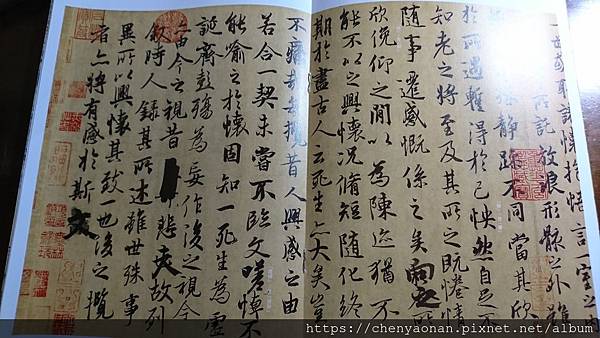 一世或取諸懷抱悟言一室之內
所託放浪形骸之外雖
殊靜躁不同當其欣
於所遇暫得於己怏然自足不
知老之將至及其所之既惓情
隨事遷感慨係之矣向之所
欣俛仰之間以為陳迹猶不
能不以之興懷況脩短隨化終
期於盡古人云死生亦大矣豈
不痛哉每攬昔人興感之由
若合一契未嘗不臨文嗟悼不
能喻之於懷固知一死生為虛
誕齊彭殤為妄作後之視今
亦由今之視昔悲夫故列
敘時人錄其所述雖世殊事
異所以興懷其致一也後之攬
者亦將有感於斯文
https://chenyaonan.pixnet.net/album